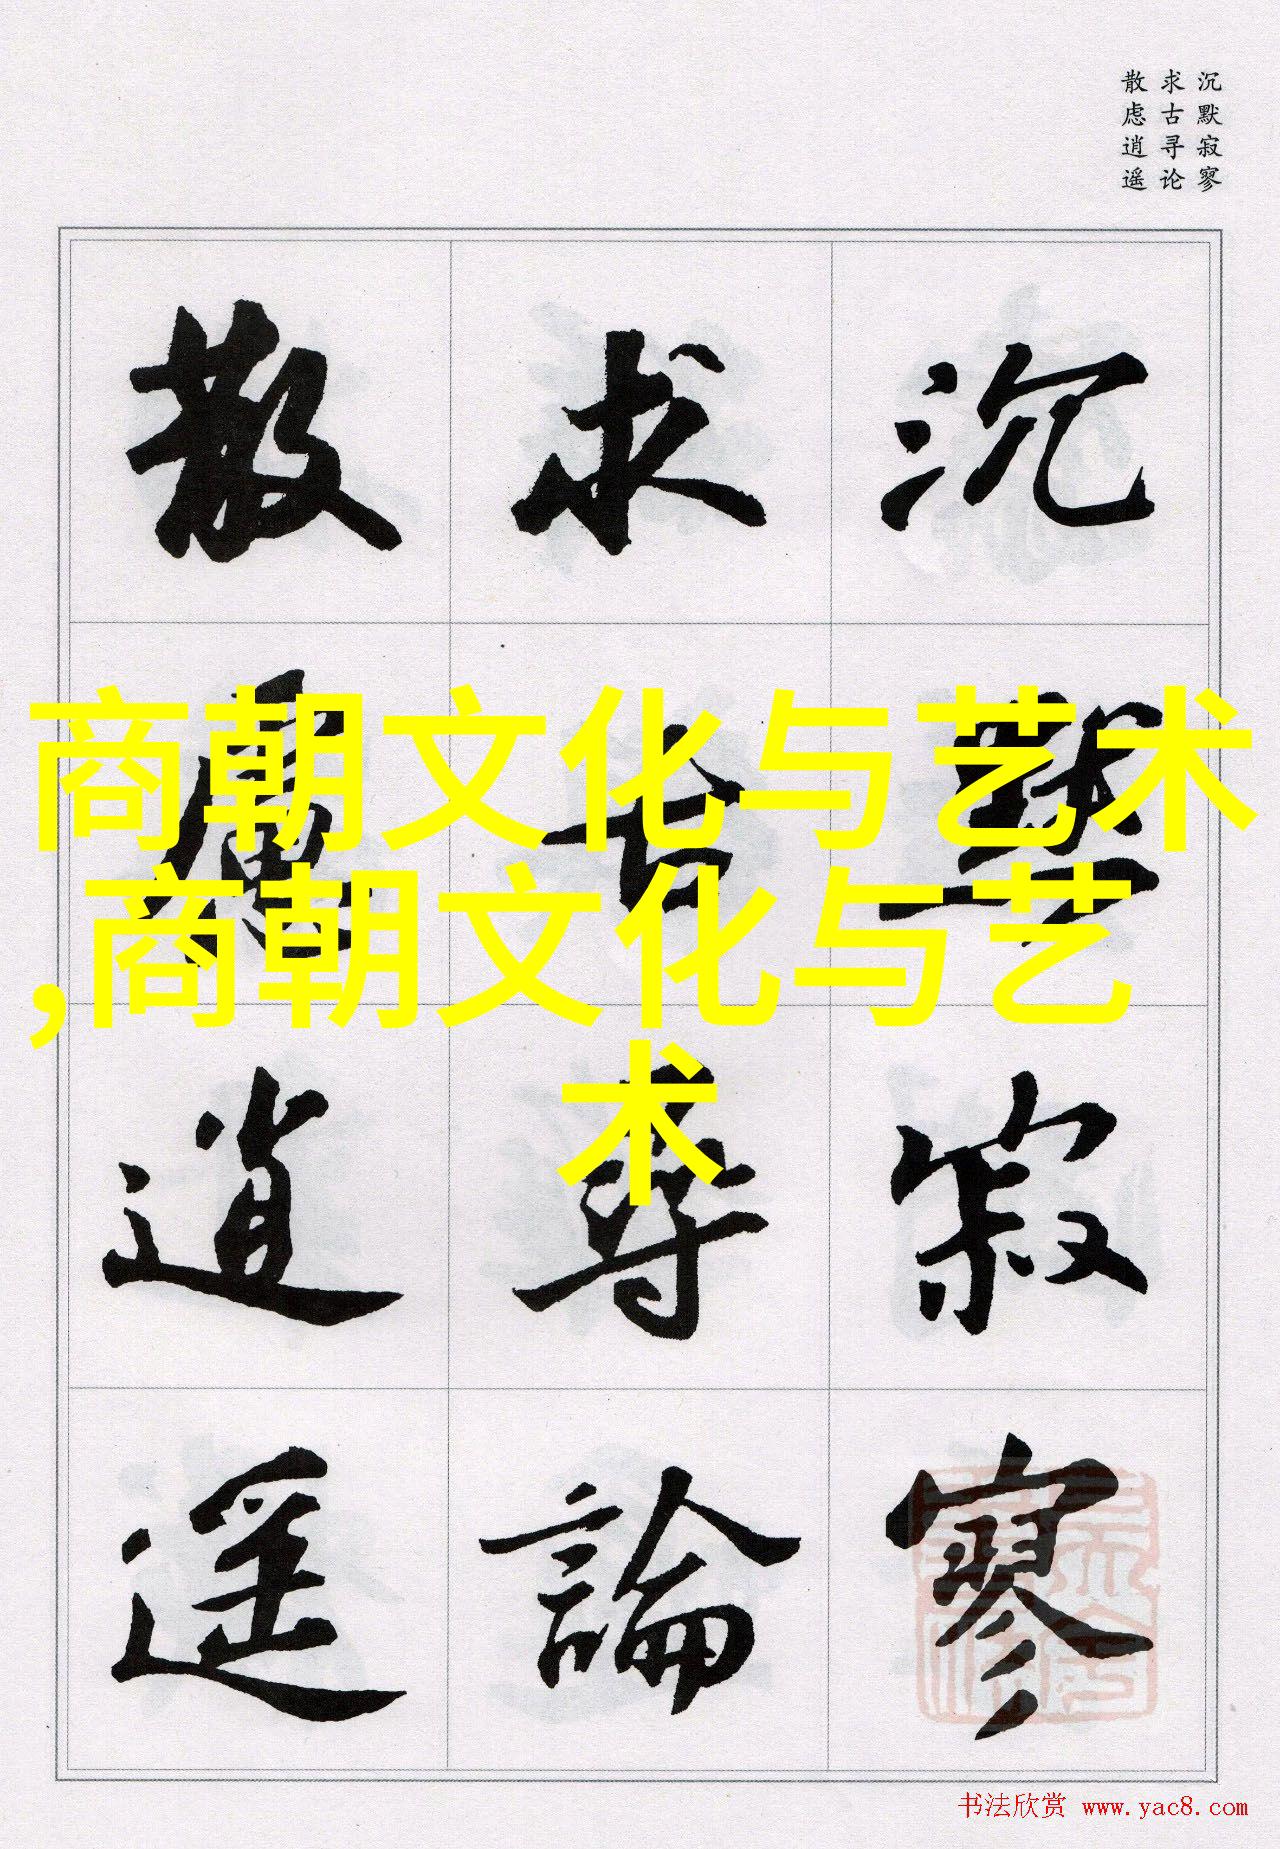 沉默寂寥
求古寻论
散虑逍遥
沉默寂寥
求古尋論
散慮逍遥
商朝文化与艺术
,商朝文化与艺
术
书法欣赏 www.yac8.com